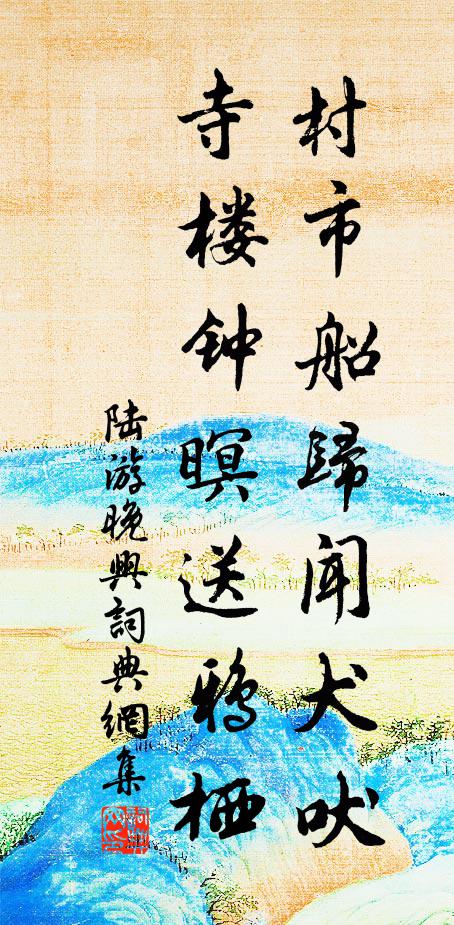 村市船歸闻犬吠
寺楼钟暝送鴉栖
陆游晚興詞典網集